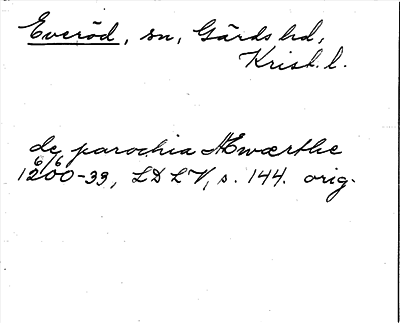 Everöd, sn, Gärds hd,
Krist. l.
de parochia Æwærthe
6/6
1200-33, LDLV, s. 144. orig.